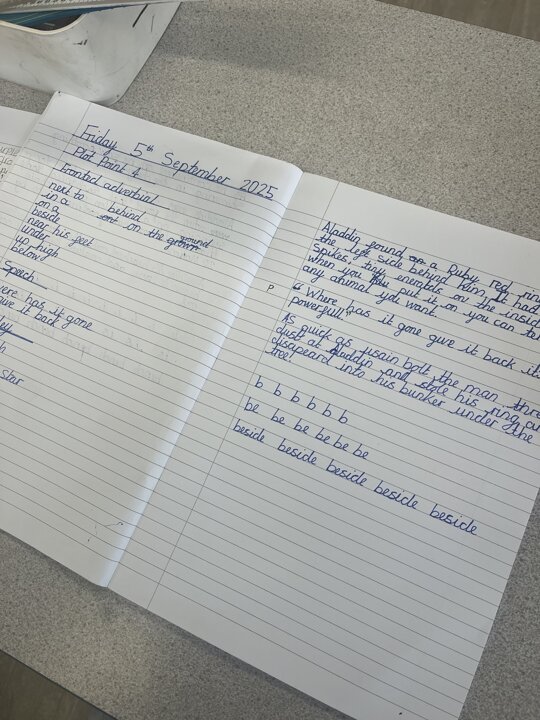 Friday 5th September 2025
Plot Point 4
Frontact adverbial
next to behind
in a on the ground
on a
beside
near his feet
under
up high
below
Speech
were has it gone
give it back
ley
star
Aladdin found on a Ruby red
the left side behind him, it had
spikes, tiny energies on the
when you put it on you can
any animal you want.
P
"Where has it gone give it back
powerfull"
As quick as usain bolt, the man
dust at Aladdin and stole his ring
disapeard into his bunker under the
tree!
b b b b b b
be be be be be be
beside beside beside beside beside